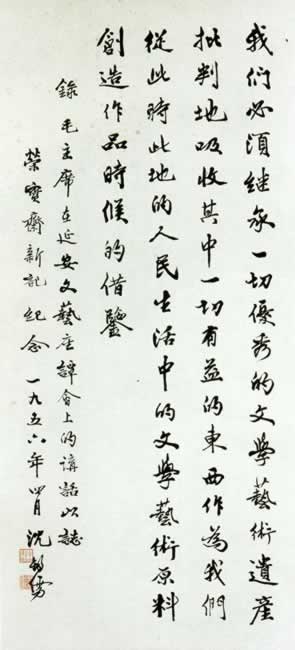 我们必須继承一切優秀的文學藝術遺產
批判地吸收其中一切有益的東西作為我們
從此時此地的人民生活中的文學藝術原料
創造作品時候的借鑒
錄毛主席在延安文藝座譚会上的講話以誌
榮寶齋新記紀念 一九五六年四月 沈鈞儒